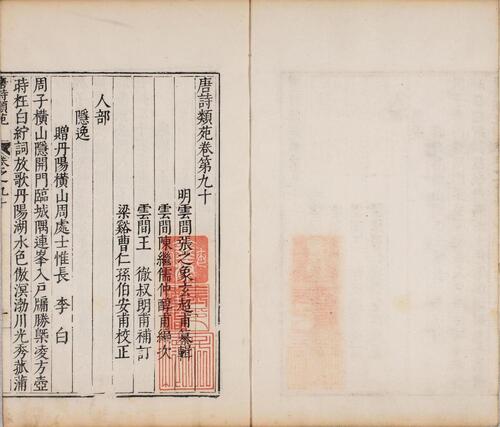 唐詩類苑卷第九十
明雲間張之象玄超甫纂輯
雲間陳繼儒仲醇甫編次
雲間王徹叔朗甫補訂
梁谿曹仁孫伯安甫校正
人部
隱逸
贈丹陽橫山周處士惟長 李白
周子橫山隱開門臨城隅連峯入戶牖勝槩凌方壺
時枉白紵詞放歌丹陽湖水色傲溟渤川光秀菰蒲
唐詩類苑 卷之九十 一